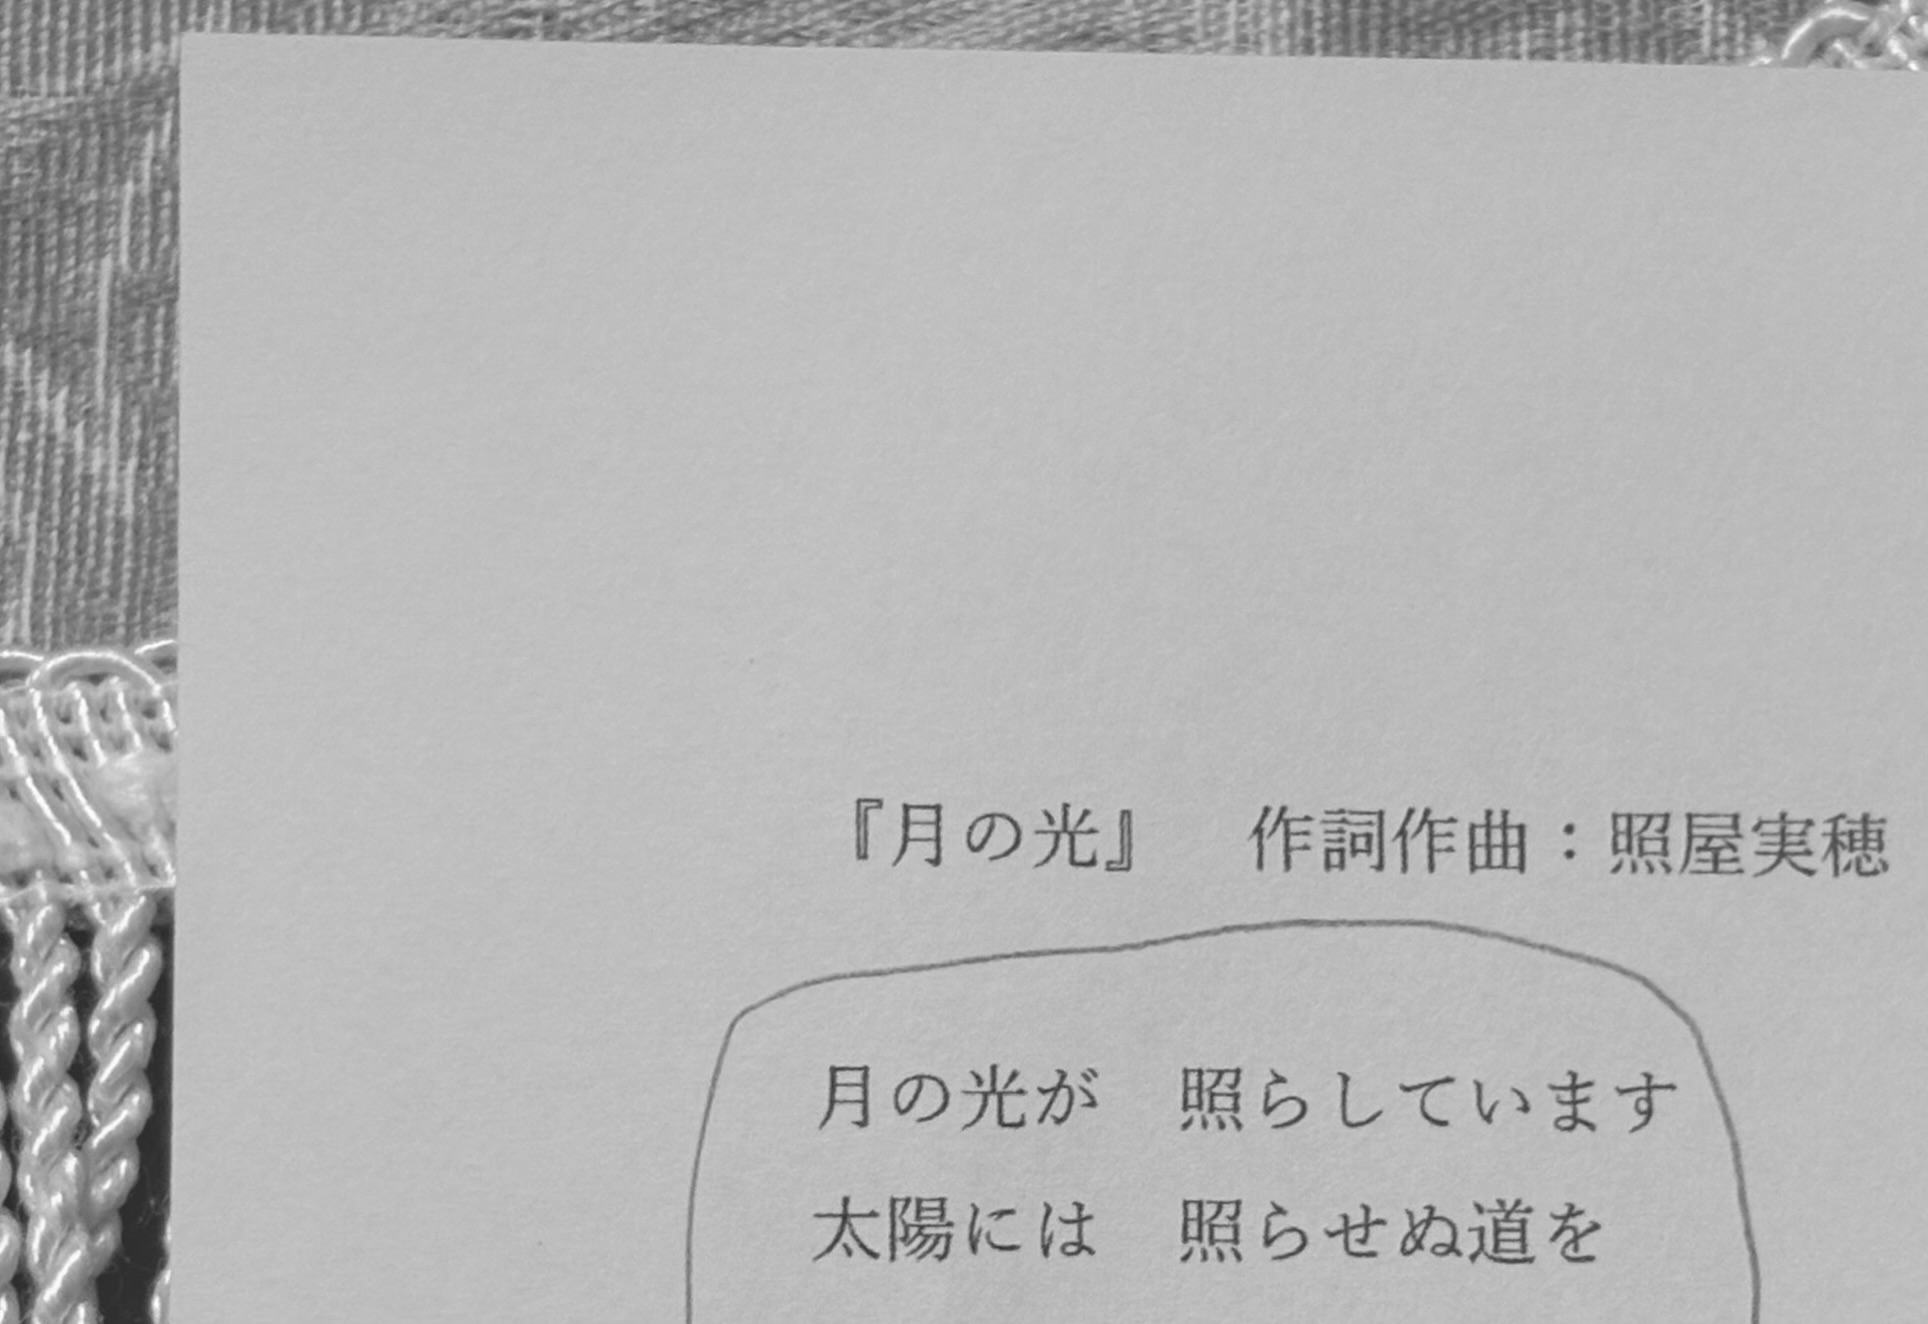 『月の光』　作詞作曲：照屋実穂
月の光が　照らしています
太陽には　照らせぬ道を